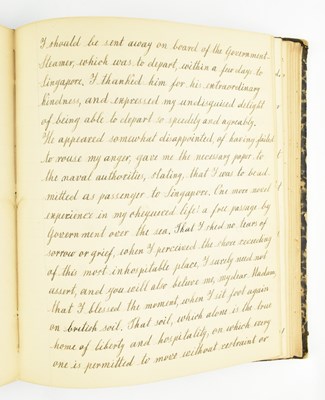 I should be sent away on board of the Government-
Steamer, which was to depart, within a few days to
Singapore. I thanked him for his extraordinary
kindness, and expressed my undisguised delight
of being able to depart so speedily and agreeably.
He appeared somewhat disappointed, of having failed
to rouse my anger, gave me the necessary paper to
the naval authorities, stating, that I was to be ad-
mitted as passenger to Singapore. One more novel
experience in my chequered life: a free passage by
Government over the sea. That I shed no tears of
sorrow or grief, when I perceived the shore receeding
of this most inhospitable place, I surely need not
assert, and you will also believe me, my dear Madam,
that I blessed the moment, when I set foot again
on british soil. That soil, which alone is the true
home of liberty and hospitality, on which every
one is permitted to move without restraint or